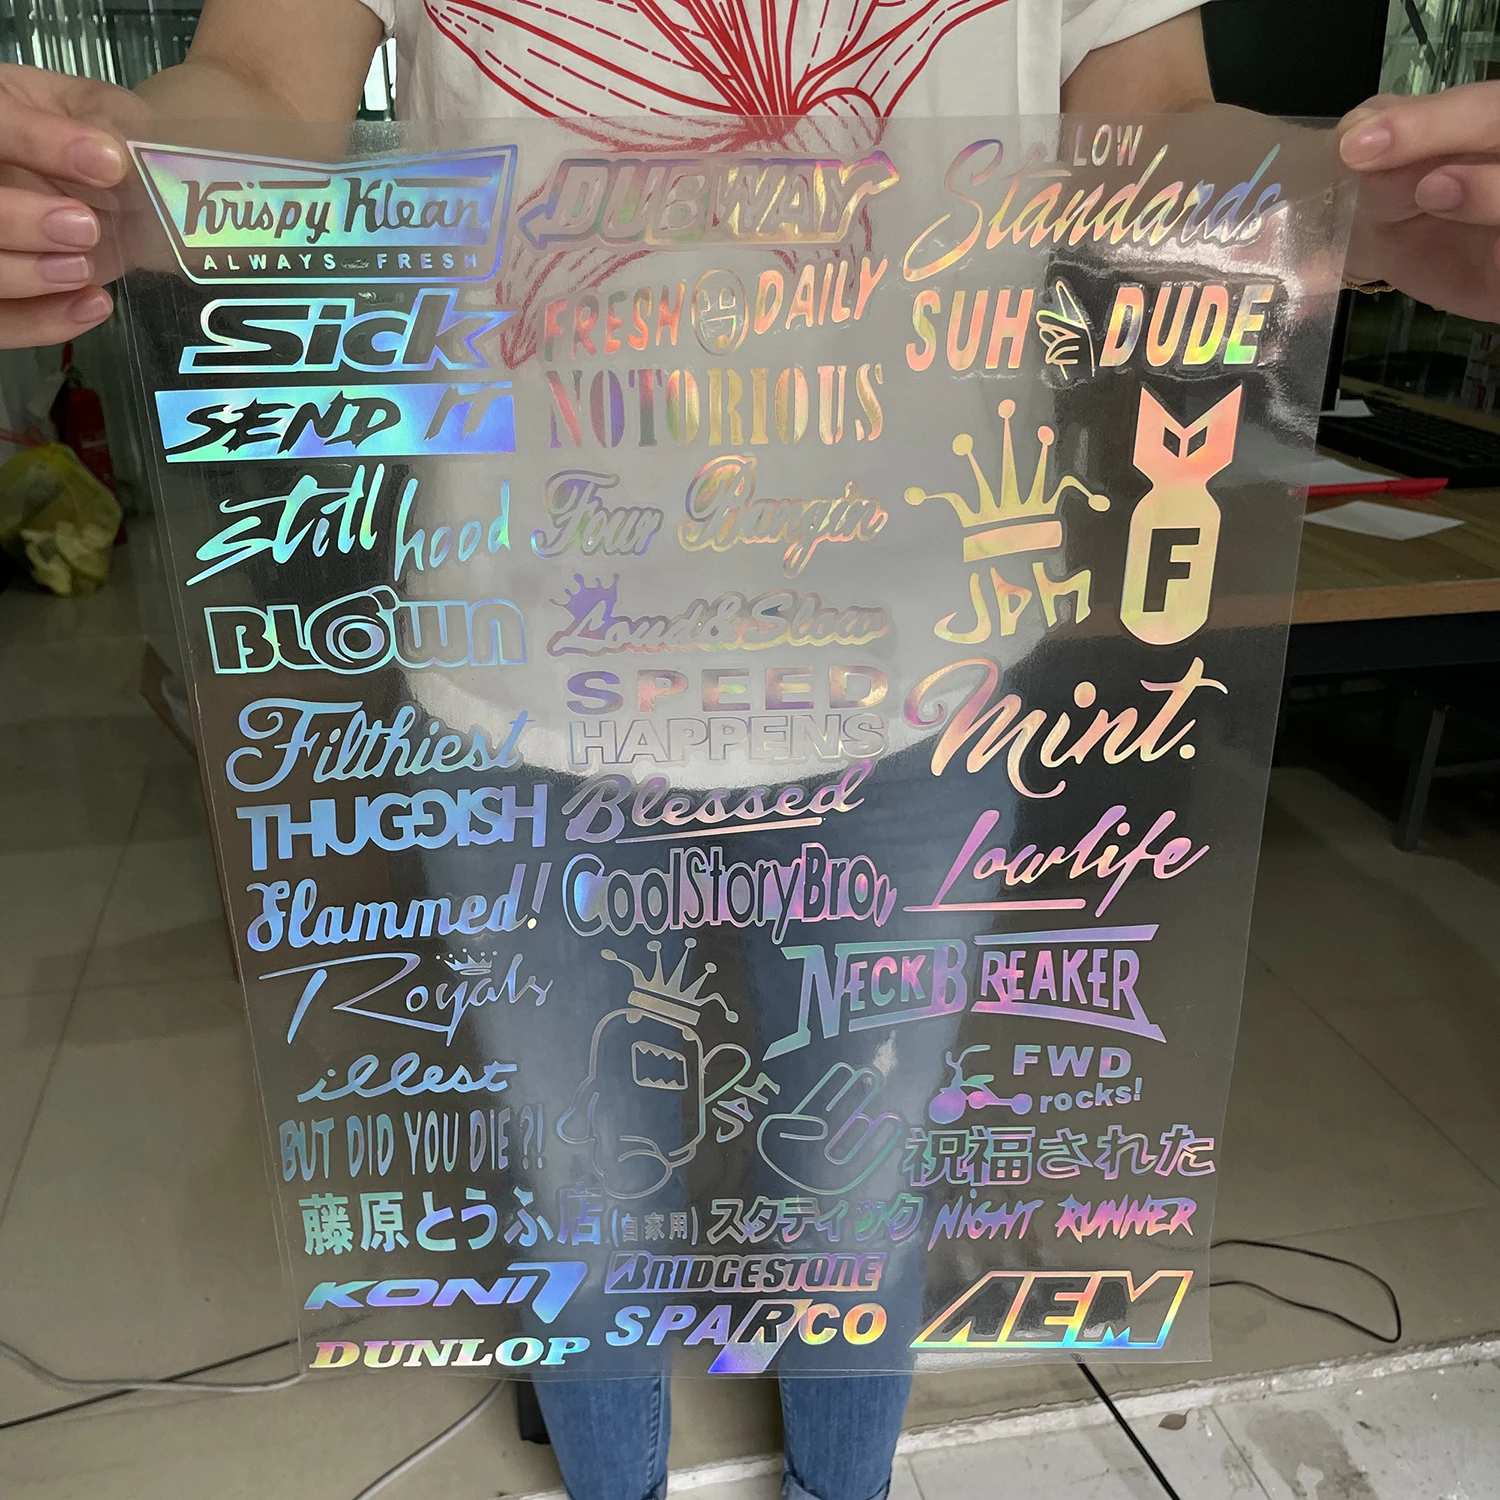 Krispy Klean
ALWAYS FRESH
DUBWAY
LOW
Standards
Sick
FRESH DAILY
SUH DUDE
SEND IT
NOTORIOUS
still hood
Four Bangin
JDM
F
BLOWN
Loud&Slow
SPEED
HAPPENS
Filthiest
Mint.
THUGGISH
Blessed
Lowlife
Slammed!
CoolStoryBro,
Royals
NECKBREAKER
illest
FWD
rocks!
BUT DID YOU DIE ?!
祝福された
藤原とうふ店(自家用)
スタディック
NIGHT RUNNER
KONI
BRIDGESTONE
AEM
DUNLOP
SPARCO